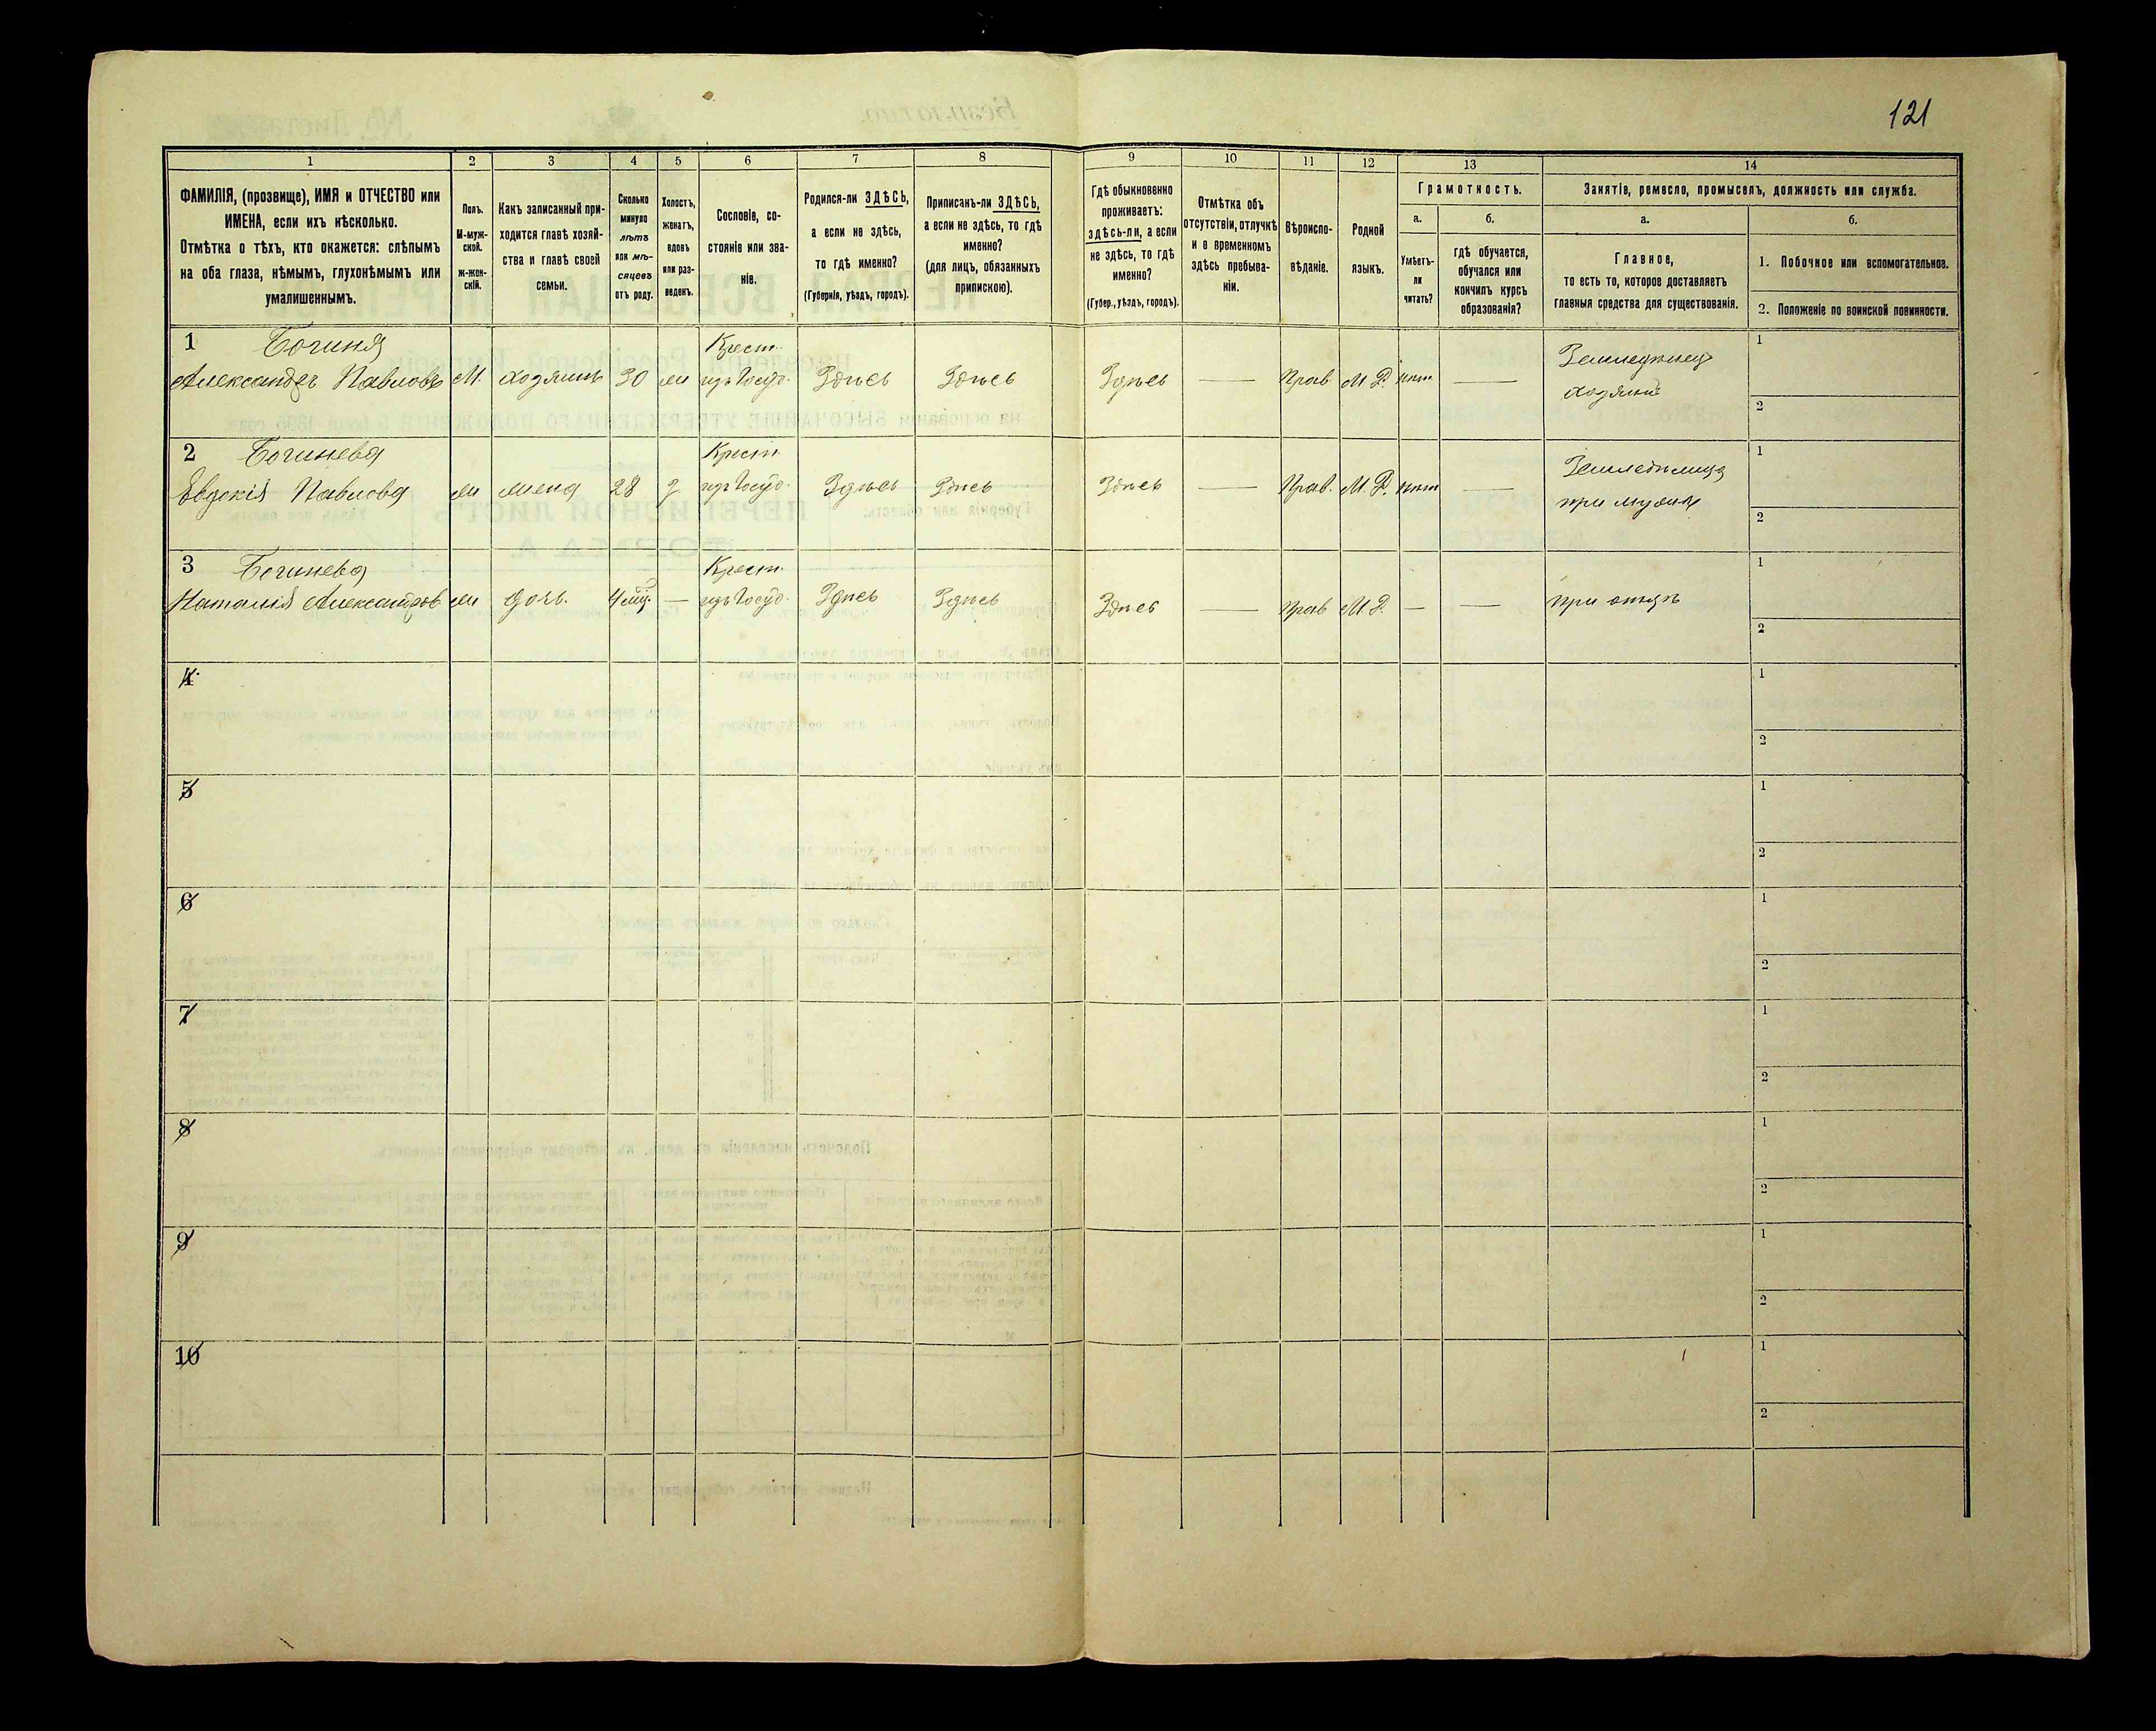 121
1 2 3 4 5 6 7 8 9 10 11 12 13 14
ФАМИЛІЯ, (прозвище), ИМЯ и ОТЧЕСТВО или
ИМЕНА, если ихъ нѣсколько.
Отмѣтка о тѣхъ, кто окажется: слѣпымъ
на оба глаза, нѣмымъ, глухонѣмымъ или
умалишеннымъ.
Полъ.
М-муж-
ской.
ж-жен-
скій.
Какъ записанный при-
ходится главѣ хозяй-
ства и главѣ своей
семьи.
Сколько
минуло
лѣтъ
или мѣ-
сяцевъ
отъ роду.
Холостъ,
женатъ,
вдовъ
или раз-
веденъ.
Сословіе, со-
стояніе или зва-
ніе.
Родился-ли ЗДѢСЬ,
а если не здѣсь,
то гдѣ именно?
(Губернія, уѣздъ, городъ).
Приписанъ-ли ЗДѢСЬ,
а если не здѣсь, то гдѣ
именно?
(для лицъ, обязанныхъ
припискою).
Гдѣ обыкновенно
проживаетъ:
здѣсь-ли, а если
не здѣсь, то гдѣ
именно?
(Губер., уѣздъ, городъ).
Отмѣтка объ
отсутствіи, отлучкѣ
и о временномъ
здѣсь пребыва-
ніи.
Вѣроиспо-
вѣданіе.
Родной
языкъ.
Грамотность.
а.
Умѣетъ-
ли
читать?
б.
гдѣ обучается,
обучался или
кончилъ курсъ
образованія?
Занятіе, ремесло, промыселъ, должность или служба.
а.
Главное,
то есть то, которое доставляетъ
главныя средства для существованія.
б.
1. Побочное или вспомогательное.
2. Положеніе по воинской повинности.
1 Богиня Крест.
Александръ Павловъ М. хозяинъ 30 жн изъ Госуд. Здѣсь Здѣсь Здѣсь — Прав. М. Р. нѣт —
Земледѣлец
хозяинъ
1
2
2 Богинева Крест.
Евдокія Павлова жн жена 28 з изъ Госуд. Здѣсь Здѣсь Здѣсь — Прав. М. Р. нѣт —
Земледѣлица
при мужѣ
1
2
3 Богинева Крест.
Наталія Александров жн дочь. 4 мѣс. — изъ Госуд. Здѣсь Здѣсь Здѣсь — Прав М. Р. — — при отцѣ
1
2
4
1
2
5
1
2
6
1
2
7
1
2
8
1
2
9
1
2
10
1
2